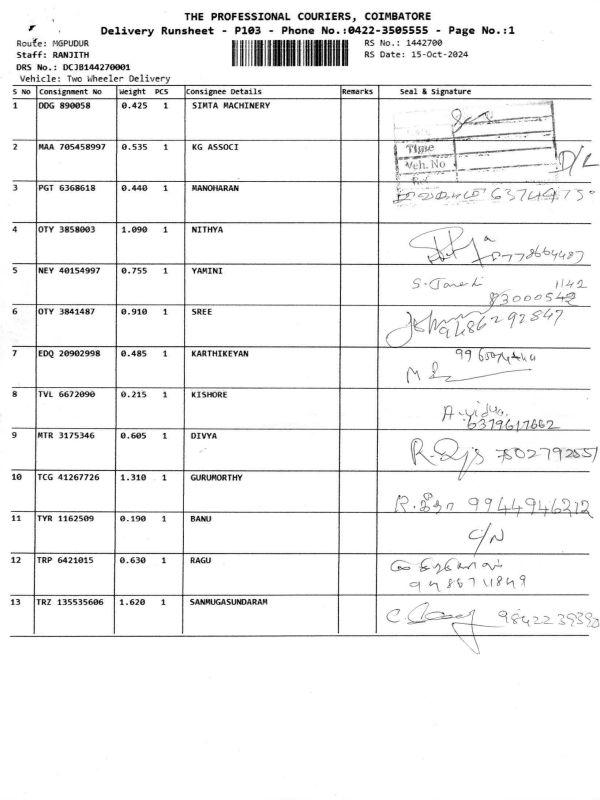 THE PROFESSIONAL COURIERS, COIMBATORE
Delivery Runsheet - P103 - Phone No.:0422-3505555 - Page No.:1
Route: MGPUDUR
RS No.: 1442700
Staff: RANJITH
RS Date: 15-Oct-2024
DRS No.: DCJB144270001
Vehicle: Two Wheeler Delivery
S No Consignment No Weight PCS Consignee Details Remarks Seal & Signature
1 DDG 890058 0.425 1 SIMTA MACHINERY
2 MAA 705458997 0.535 1 KG ASSOCI
Time
Veh.No
D/L
3 PGT 6368618 0.440 1 MANOHARAN
4 OTY 3858003 1.090 1 NITHYA
8778664487
5 NEY 40154997 0.755 1 YAMINI
1142
83000542
6 OTY 3841487 0.910 1 SREE
9486292847
7 EDQ 20902998 0.485 1 KARTHIKEYAN
8 TVL 6672090 0.215 1 KISHORE
6379617662
9 MTR 3175346 0.605 1 DIVYA
10 TCG 41267726 1.310 1 GURUMORTHY
R. கீதா 9944946212
11 TYR 1162509 0.190 1 BANU
C/N
12 TRP 6421015 0.630 1 RAGU
9486711849
13 TRZ 135535606 1.620 1 SANMUGASUNDARAM
9842239390